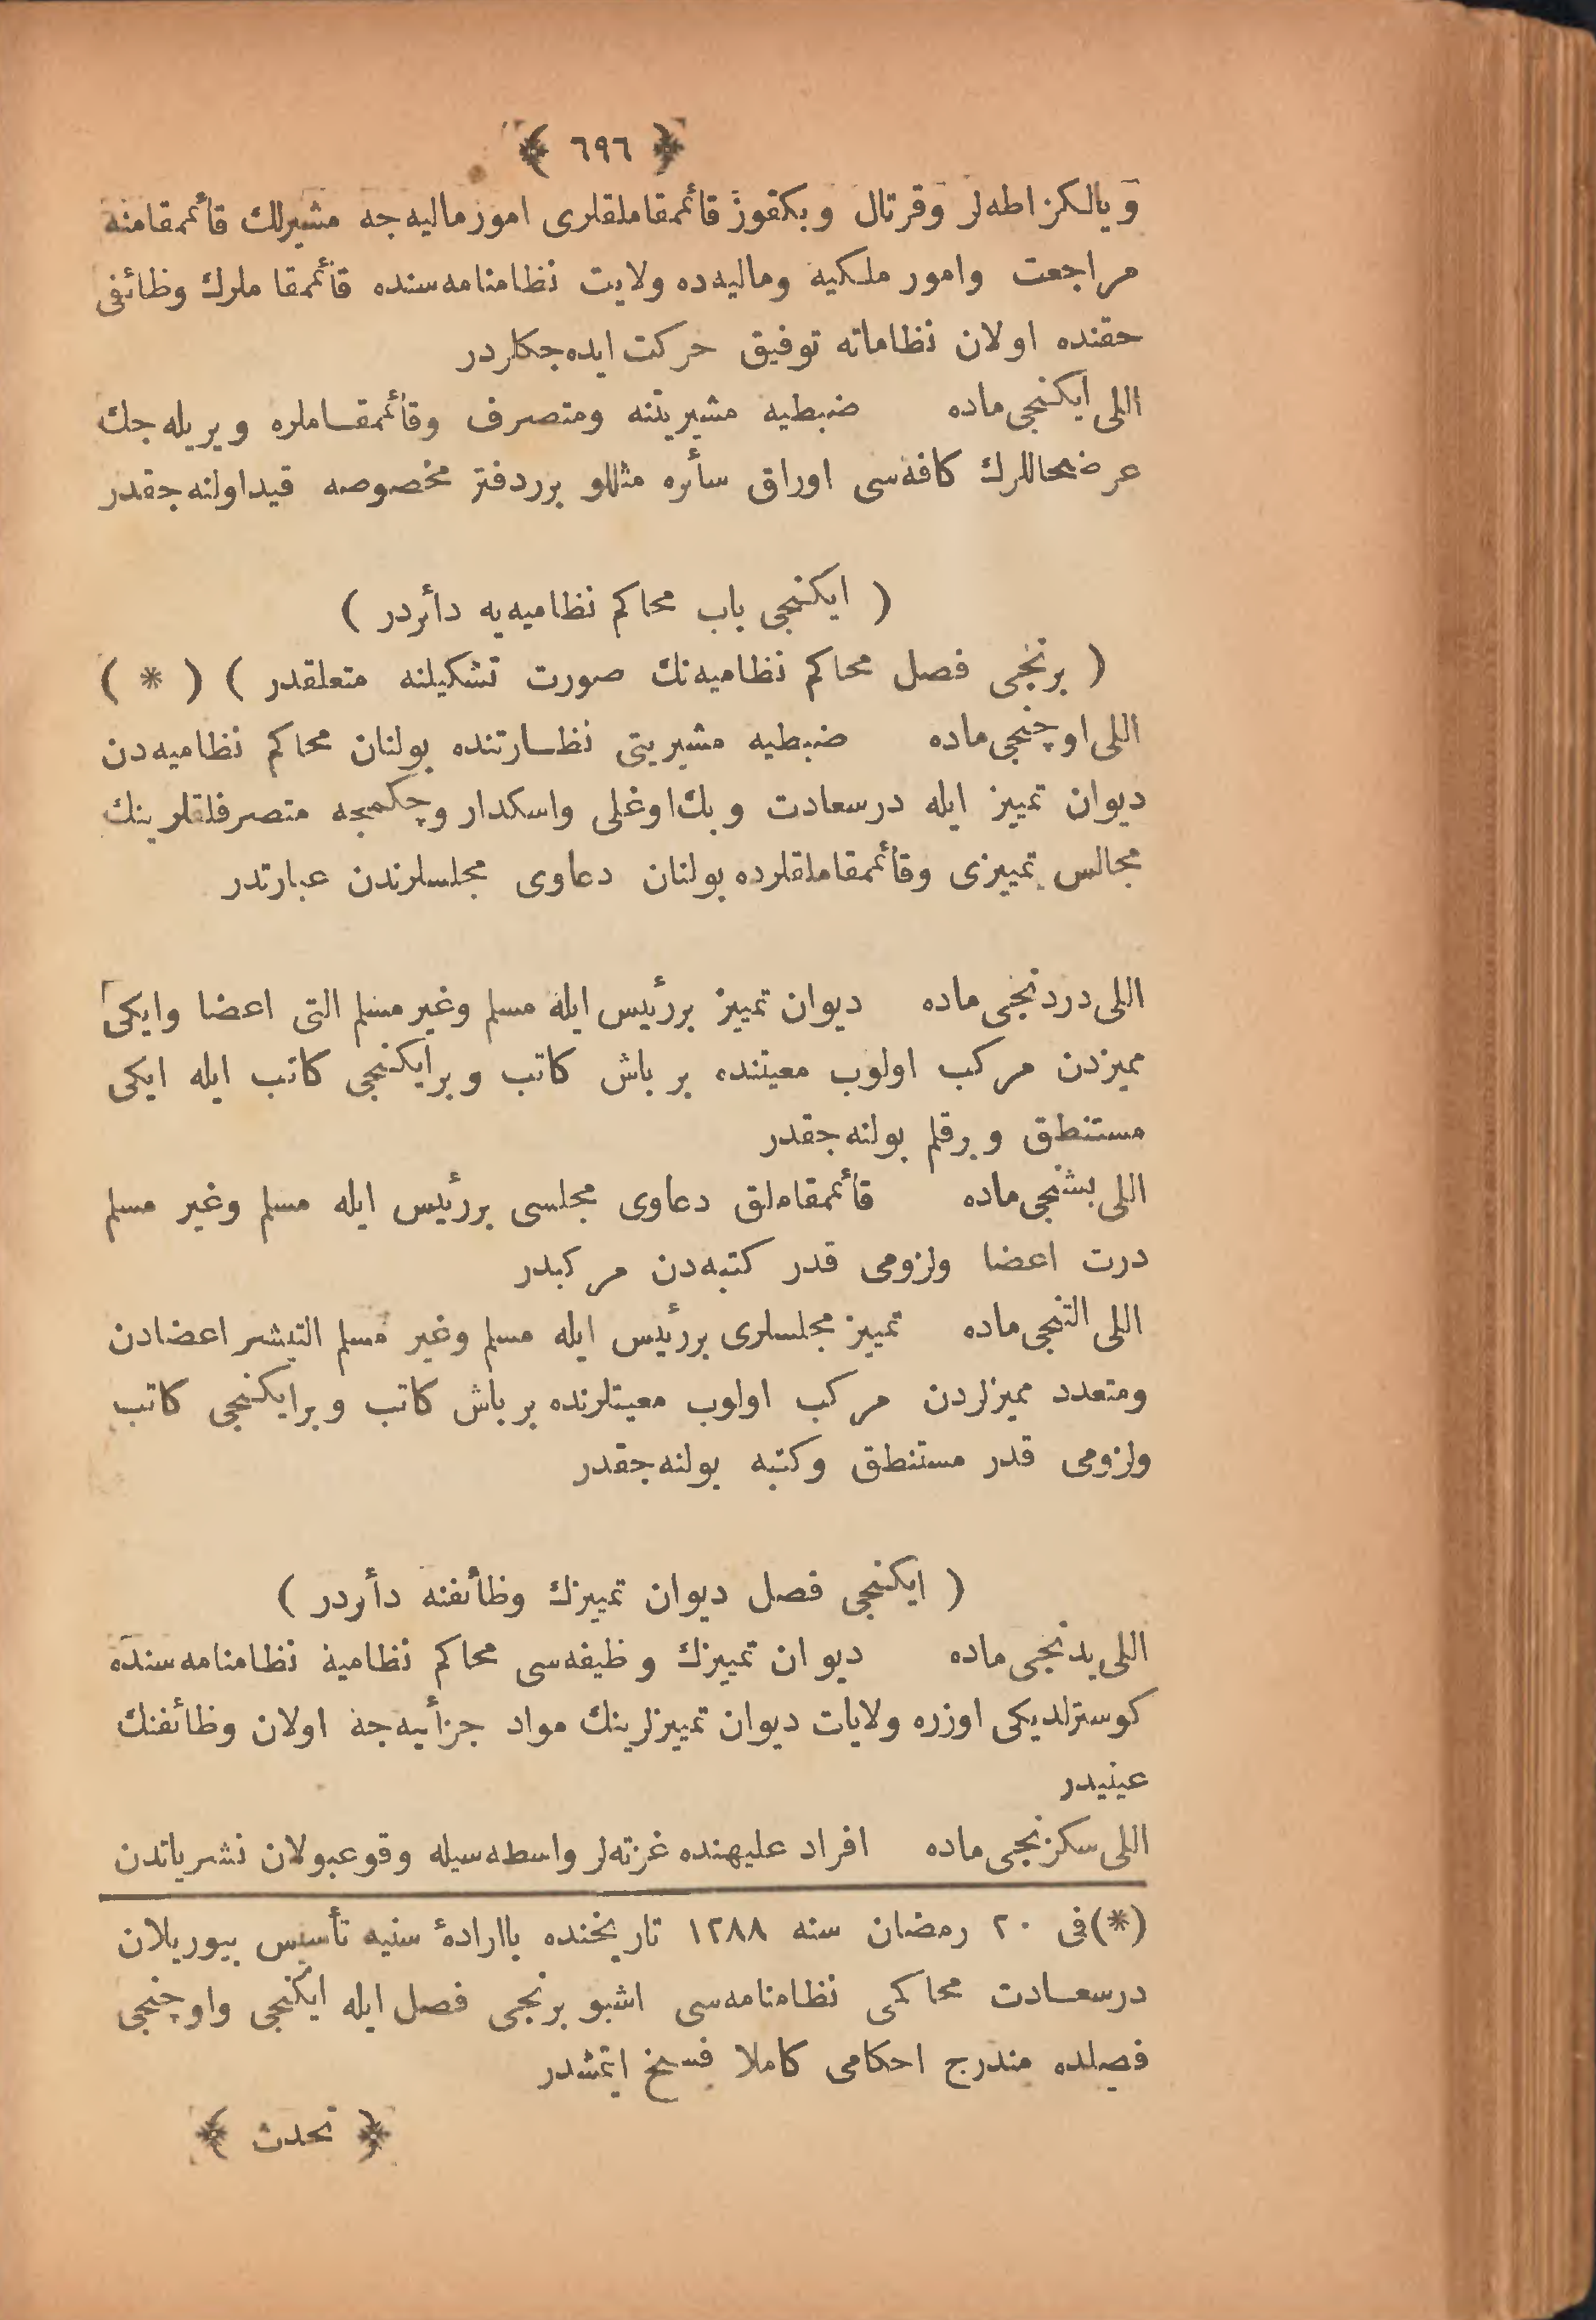 ﴿ ٦٩٦ ﴾
ويالكز اطه‌لر وقرتال وبكقوز قائممقاملقلری امور ماليه‌جه مشيرلك قائممقامنه
مراجعت وامور ملكيه وماليه‌ده ولايت نظامنامه‌سنده قائممقاملرك وظائفی
حقنده اولان نظاماته توفيق حركت ايده‌جكلردر
اللی ايكنجی ماده ضبطيه مشيريتنه ومتصرف وقائممقاملره ويريله‌جك
عرضحاللرك كافه‌سی اوراق سائره مثللو برر دفتر مخصوصه قيد اولنه‌جقدر
( ايكنجی باب محاكم نظاميه‌يه دائردر )
( برنجی فصل محاكم نظاميه‌نك صورت تشكيلنه متعلقدر ) ( * )
اللی اوچنجی ماده ضبطيه مشيريتی نظارتنده بولنان محاكم نظاميه‌دن
ديوان تمييز ايله درسعادت وبك‌اوغلی واسكدار وچكمجه متصرفلقلرينك
مجالس تمييزی وقائممقاملقلرده بولنان دعاوی مجلسلرندن عبارتدر
اللی دردنجی ماده ديوان تمييز بررئيس ايله مسلم وغير مسلم التی اعضا وايكی
مميزدن مركب اولوب معيتنده بر باش كاتب وبرايكنجی كاتب ايله ايكی
مستنطق وبرقلم بولنه‌جقدر
اللی بشنجی ماده قائممقاملق دعاوی مجلسی بررئيس ايله مسلم وغير مسلم
درت اعضا ولزومی قدر كتبه‌دن مركبدر
اللی التنجی ماده تمييز مجلسلری بررئيس ايله مسلم وغير مسلم التيشر اعضادن
ومتعدد مميزلردن مركب اولوب معيتلرنده بر باش كاتب وبرايكنجی كاتب
ولزومی قدر مستنطق وكتبه بولنه‌جقدر
( ايكنجی فصل ديوان تمييزك وظائفنه دائردر )
اللی يدنجی ماده ديوان تمييزك وظيفه‌سی محاكم نظاميه نظامنامه‌سنده
كوسترلديكی اوزره ولايات ديوان تمييزلرينك مواد جزائيه‌جه اولان وظائفنك
عينيدر
اللی سكزنجی ماده افراد عليهنده غزته‌لر واسطه‌سيله وقوعبولان نشرياتدن
(*) فی ٢٠ رمضان سنه ١٢٨٨ تاريخنده بااراده‌ٔ سنيه تأسيس بيوريلان
درسعادت محاكمی نظامنامه‌سی اشبو برنجی فصل ايله ايكنجی واوچنجی
فصلده مندرج احكامی كاملا فسخ ايتمشدر
﴿ تحدث ﴾